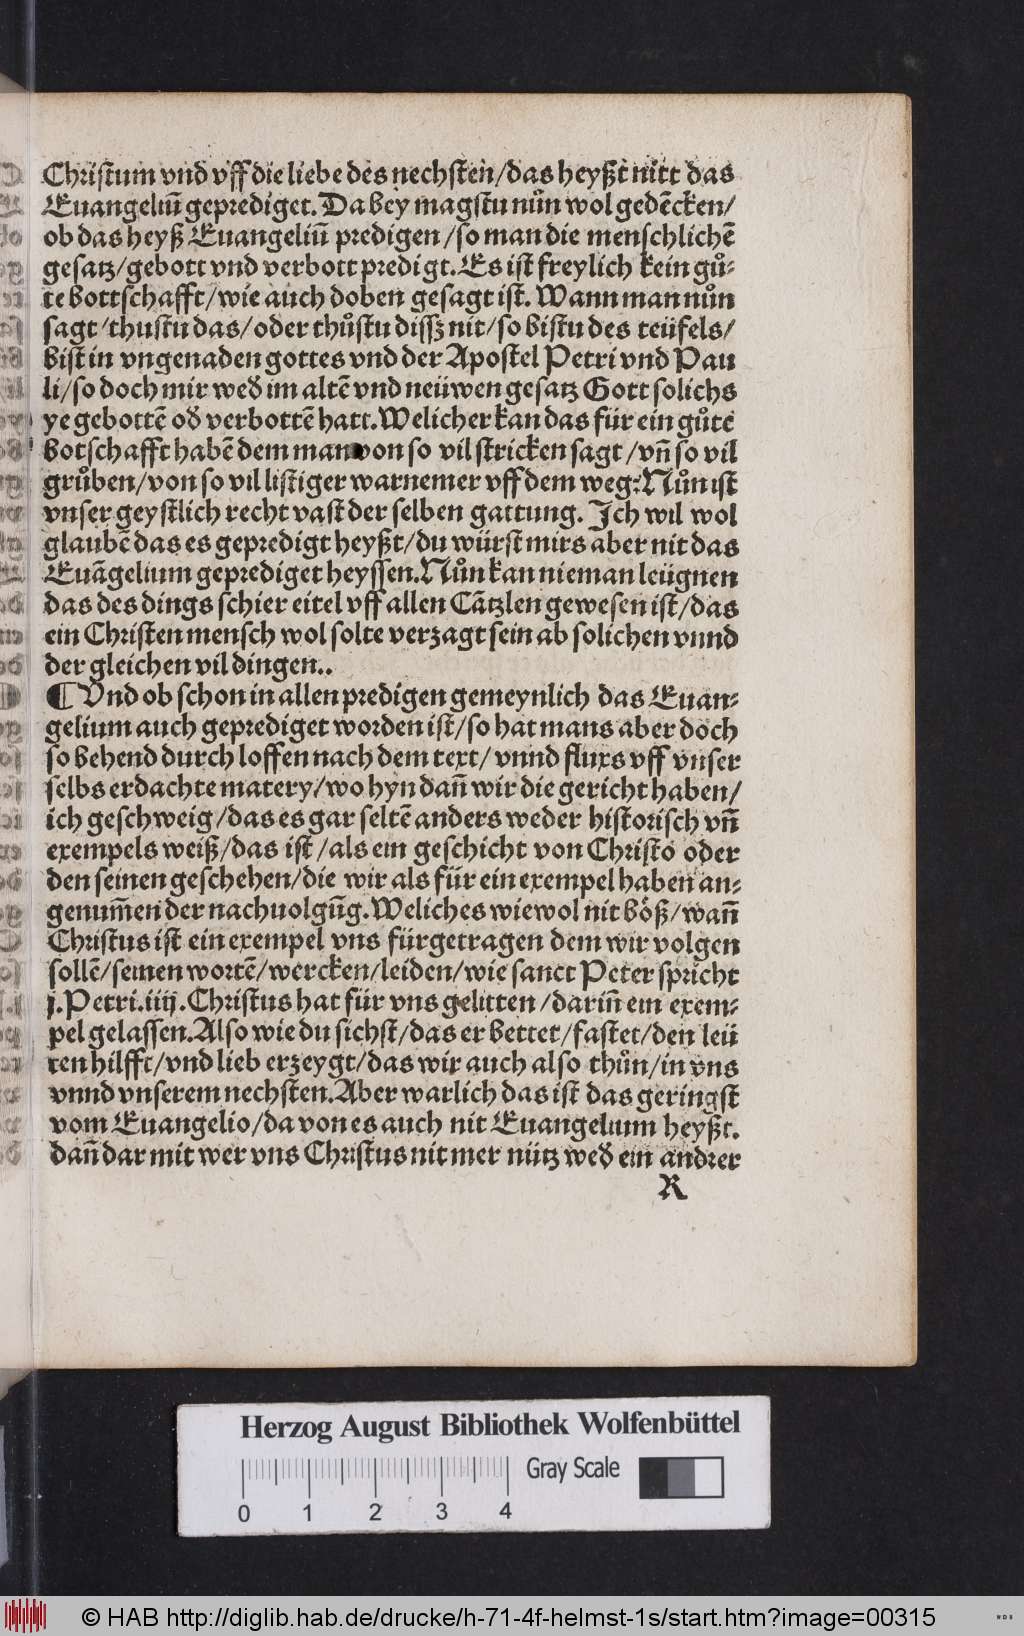 Christum vnd vff die liebe des nechsten/das heyßt nitt das
Euangeliū geprediget. Da bey magstu nůn wol gedēcken/
ob das heyß Euangeliū predigen/so man die menschlichē
gesatz/gebott vnd verbott predigt. Es ist freylich kein gů⸗
te bottschafft/wie auch doben gesagt ist. Wann man nůn
sagt/thustu das/oder thůstu dissz nit/so bistu des teüfels/
bist in vngenaden gottes vnd der Apostel Petri vnd Pau
li/so doch mir weď im altē vnd neüwen gesatz Gott solichs
ye gebottē oď verbottē hatt. Welicher kan das für ein gůte
botschafft habē dem man von so vil stricken sagt/vñ so vil
grůben/von so vil listiger warnemer vff dem weg: Nůn ist
vnser geystlich recht vast der selben gattung. Ich wil wol
glaubē das es gepredigt heyßt/du würst mirs aber nit das
Euāgelium geprediget heyssen. Nůn kan nieman leügnen
das des dings schier eitel vff allen Cātzlen gewesen ist/das
ein Christen mensch wol solte verzagt sein ab solichen vnnd
der gleichen vil dingen..
¶ Vnd ob schon in allen predigen gemeynlich das Euan⸗
gelium auch geprediget worden ist/so hat mans aber doch
so behend durch loffen nach dem text/vnnd fluxs vff vnser
selbs erdachte matery/wo hyn dañ wir die gericht haben/
ich geschweig/das es gar seltē anders weder historisch vñ
exempels weiß/das ist/als ein geschicht von Christo oder
den seinen geschehen/die wir als für ein exempel haben an⸗
genum̄en der nachuolgūg. Weliches wiewol nit böß/wañ
Christus ist ein exempel vns fürgetragen dem wir volgen
sollē/seinen wortē/wercken/leiden/wie sanct Peter spricht
j. Petri. iiij. Christus hat für vns gelitten/dariñ ein exem⸗
pel gelassen. Also wie du sichst/das er bettet/fastet/den leü
ten hilfft/vnd lieb erzeygt/das wir auch also thůn/in vns
vnnd vnserem nechsten. Aber warlich das ist das geringst
vom Euangelio/da von es auch nit Euangelium heyßt.
dañ dar mit wer vns Christus nit mer nütz weď ein andrer
R
Herzog August Bibliothek Wolfenbüttel
Gray Scale
0 1 2 3 4
© HAB http://diglib.hab.de/drucke/h-71-4f-helmst-1s/start.htm?image=00315